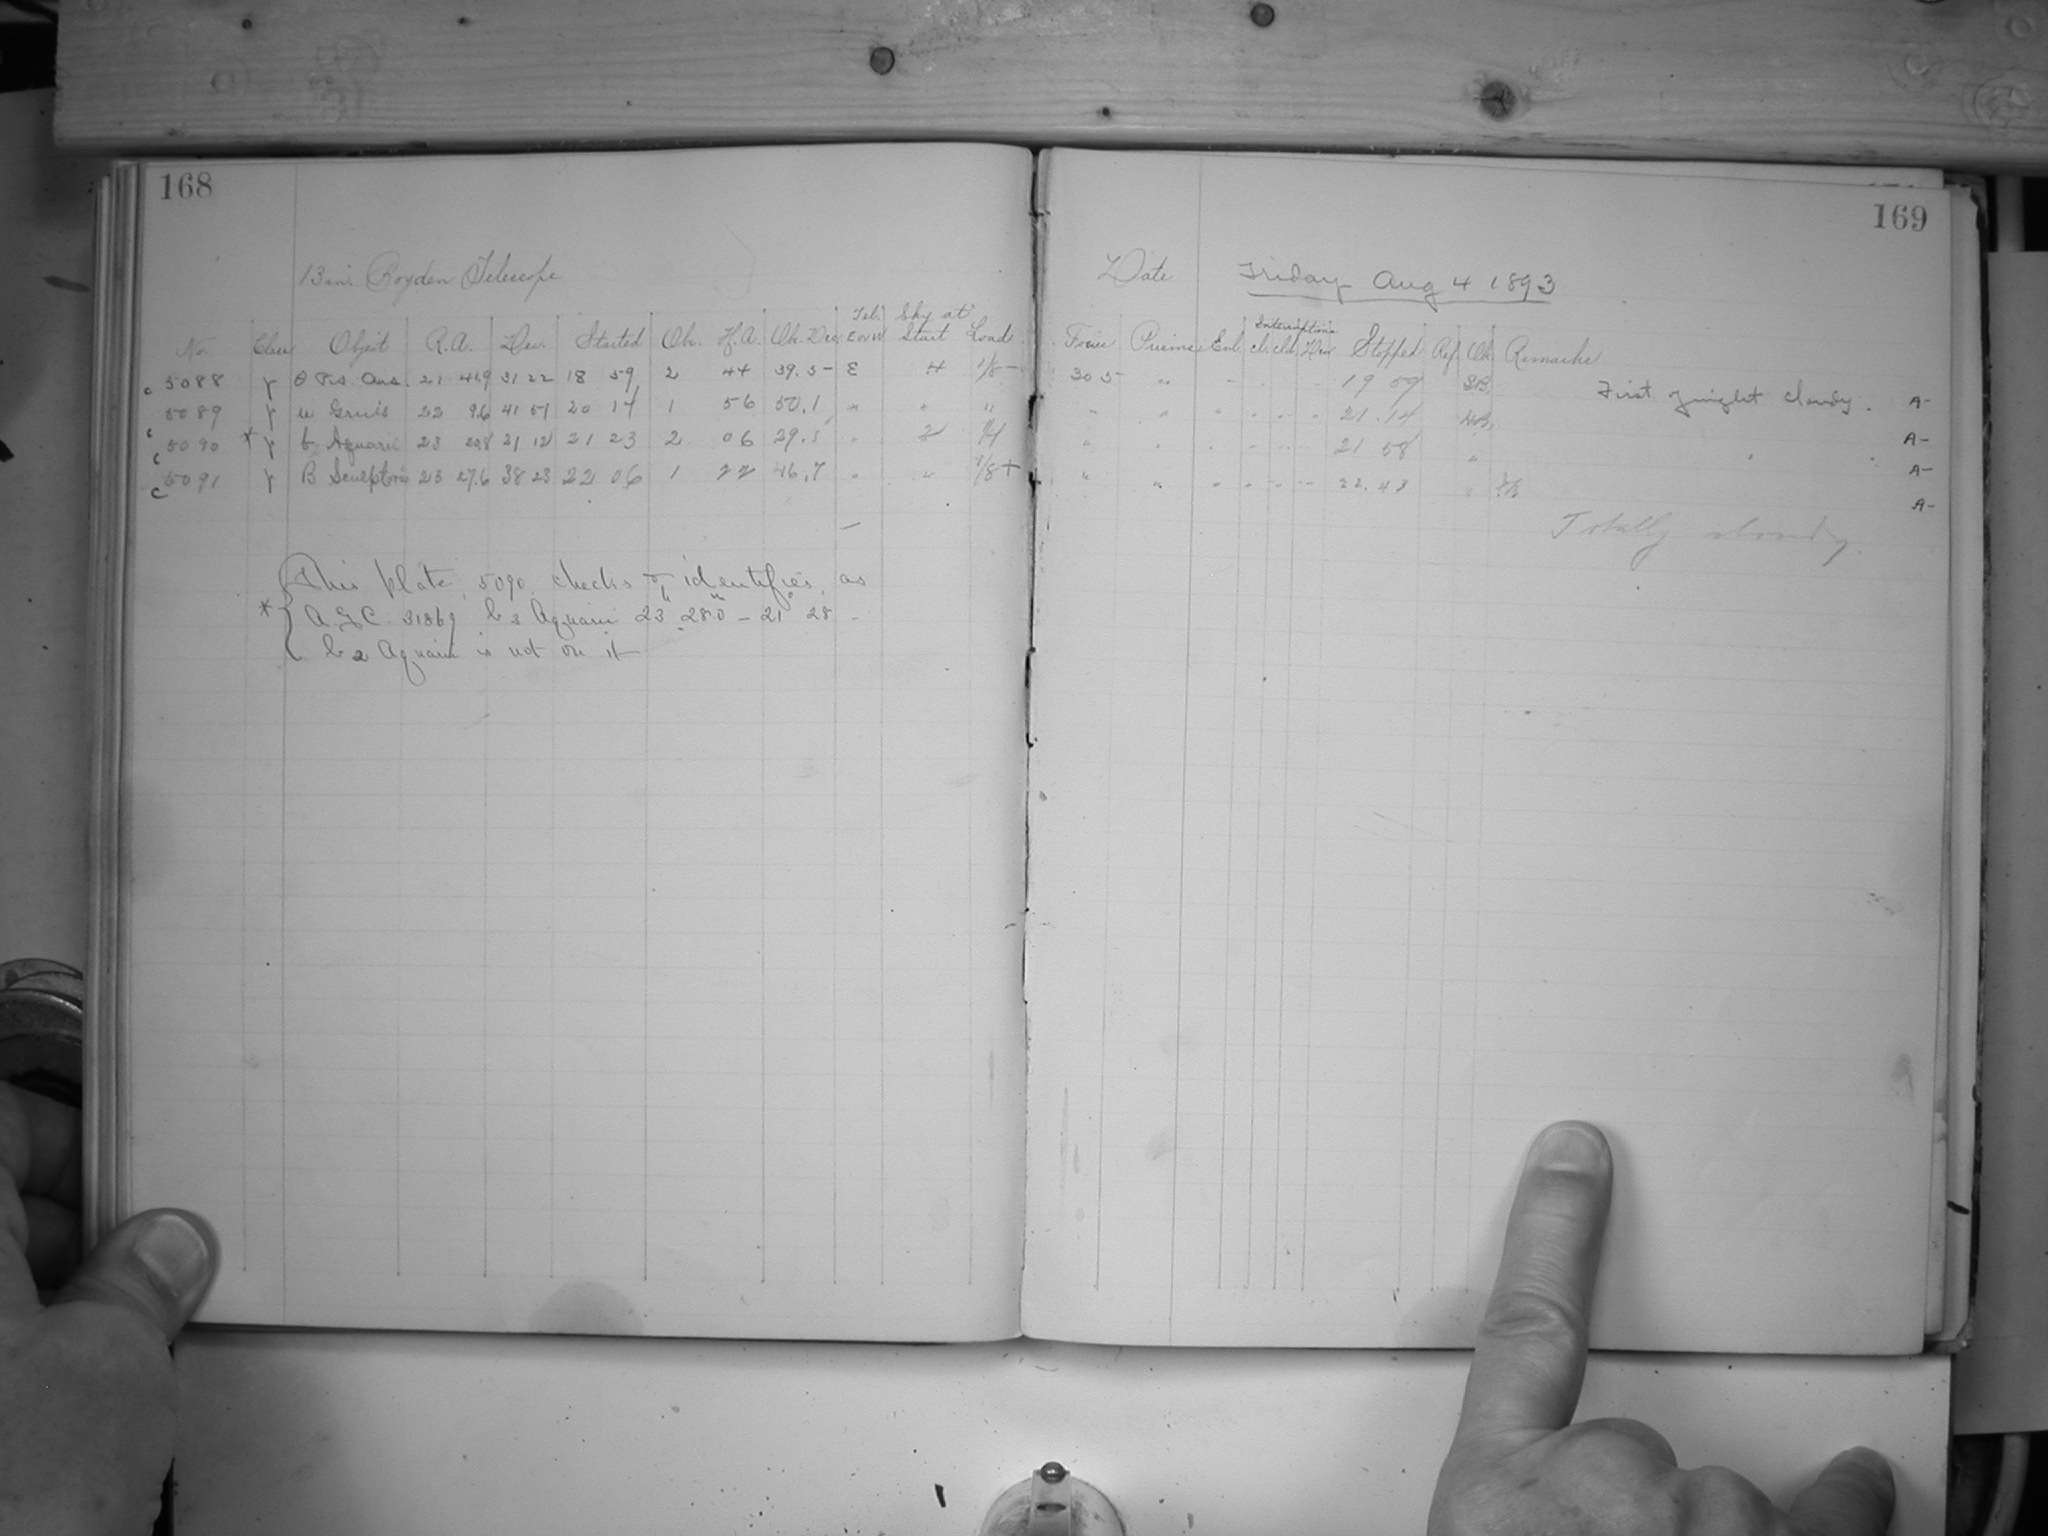 168
13 in. Boyden Telescope
No. Class Object R.A. Dec. Started Ob. H.A. Ob. Dec. Tel. E or W Sky at Start Load
c 5088 γ θ Pis. Aus. 21 41.9 31 22 18 59 2 44 39.5 E 4 1/8 -
c 5089 γ Gruis 22 9.6 41 51 20 14 1 56 50.1 " " "
c 5090 * γ b Aquarii 23 20.8 21 12 21 23 2 06 29.5 " 2 1/4
c 5091 γ B Sculptoris 23 27.6 38 23 22 06 1 22 46.7 " " 1/8 +
This plate, 5090, checks identifies as
* A.G.C. 31869 b 3 Aquarii 23 28.0 - 21° 28
b 2 Aquarii is not on it
169
Date Friday Aug 4 1893
Focus Prisms Enl. Interruptions Cl. Cld. Dew Stopped Ref. Ob. Remarks
30 5 " - 19 59 First of night cloudy. A-
" " " " " " 21 14 A-
" " " " " " 21 58 " A-
" " " " " " 22 43 " A-
Totally cloudy.